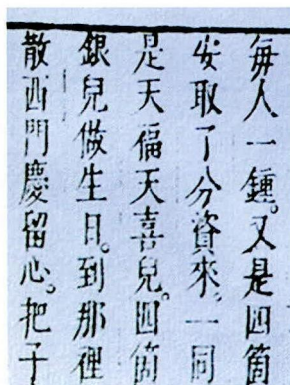 每人一鍾。又是四箇
安取了分資來。一同
是天福天喜兒。四箇
銀兒做生日。到那裡
散西門慶留心。把子